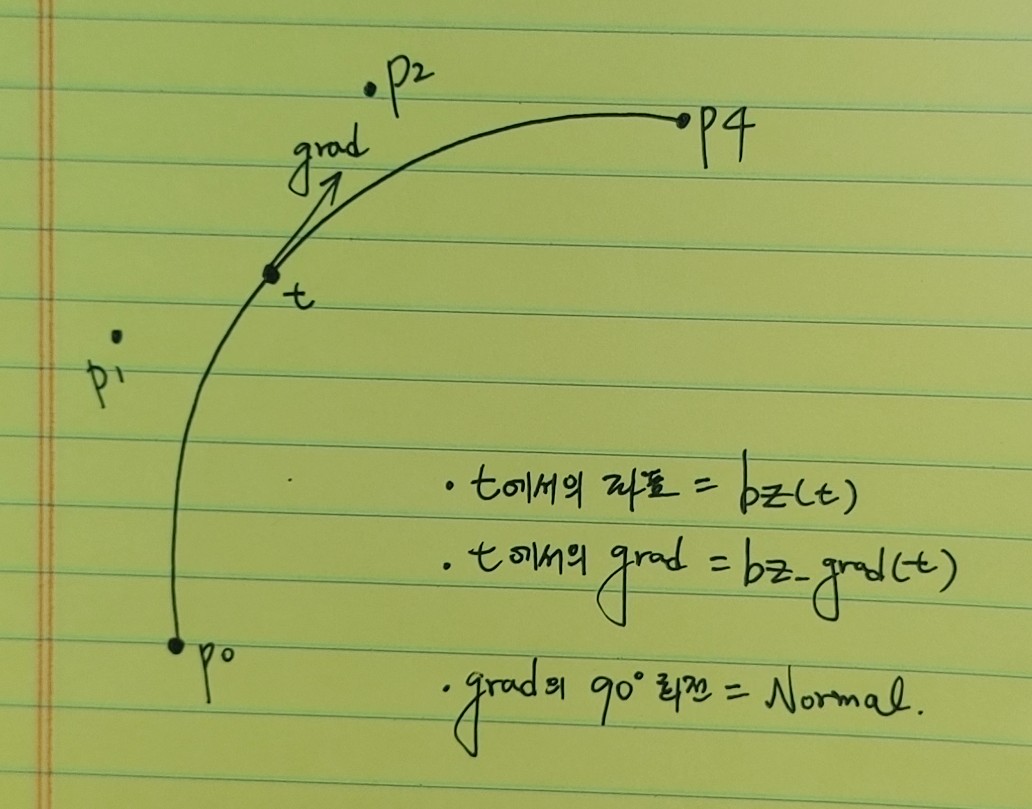 p2
p4
grad
t
p1
p0
· t에서의 좌표 = bz(t)
· t에서의 grad = bz_grad(t)
· grad의 90° 회전 = Normal.